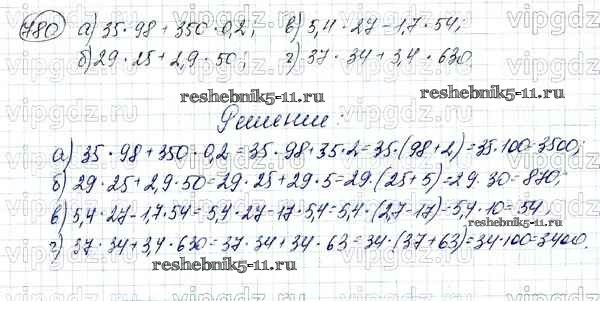 780 а) 35·98 + 350·0,2; в) 5,4·27 - 1,7·54;
б) 29·25 + 2,9·50; г) 37·34 + 3,4·630.
reshebnik5-11.ru reshebnik5-11.ru
Решение:
а) 35·98+350·0,2=35·98+35·2=35·(98+2)=35·100=3500;
б) 29·25+2,9·50=29·25+29·5=29·(25+5)=29·30=870;
в) 5,4·27-1,7·54=5,4·27-17·5,4=5,4·(27-17)=5,4·10=54.
г) 37·34+3,4·630=37·34+34·63=34·(37+63)=34·100=3400.
reshebnik5-11.ru reshebnik5-11.ru
vipgdz.ru